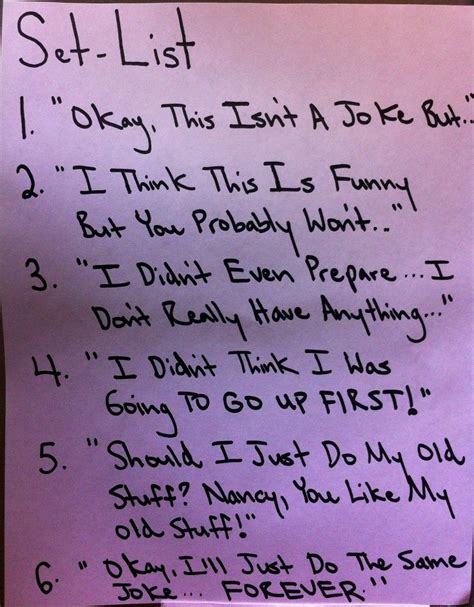 Set-List
1. "Okay, This Isn't A Joke But.."
2. "I Think This Is Funny
But You Probably Won't.."
3. "I Didn't Even Prepare...I
Don't Really Have Anything..."
4. "I Didn't Think I Was
Going TO GO UP FIRST!"
5. "Should I Just Do My Old
Stuff? Nancy, You Like My
Old Stuff!"
6. "Okay, I'll Just Do The Same
Joke... FOREVER."